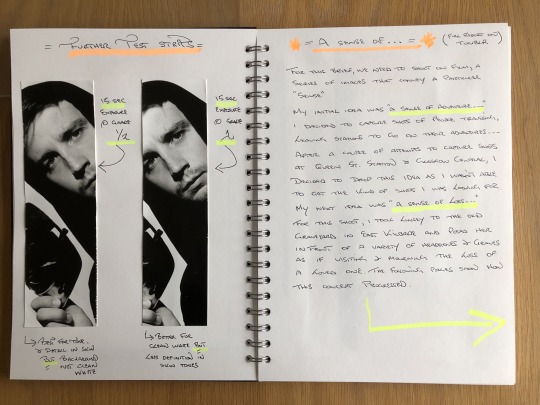 = FURTHER TEST STRIPS =
15 SEC
EXPOSURE
@ GRADE
1/2
15 SEC
EXPOSURE
@ GRADE
1
DETAIL IN SKIN
BUT BACKGROUND
NOT CLEAN
WHITE
BETTER FOR
CLEAN WHITE BUT
LESS DEFINITION IN
SKIN TONES
= A SENSE OF... =
(FULL BRIEF ON
TUMBLR)
FOR THIS BRIEF, WE NEED TO SHOOT ON FILM, A
SERIES OF IMAGES THAT CONVEY A PARTICULAR
"SENSE"
MY INITIAL IDEA WAS "A SENSE OF ADVENTURE..."
I DECIDED TO CAPTURE SHOTS OF PEOPLE TRANSITING,
LEAVING STATIONS TO GO ON THEIR ADVENTURES...
AFTER A COUPLE OF ATTEMPTS TO CAPTURE SHOTS
AT QUEEN ST. STATION & GLASGOW CENTRAL, I
DECIDED TO DROP THIS IDEA AS I WASN'T ABLE
TO GET THE KIND OF SHOTS I WAS LOOKING FOR
MY NEXT IDEA WAS "A SENSE OF LOSS..."
FOR THIS SHOOT, I TOOK LINDSEY TO THE OLD
GRAVEYARD IN EAST KILBRIDE AND POSED HER
IN FRONT OF A VARIETY OF HEADSTONES & GRAVES
AS IF VISITING & MOURNING THE LOSS OF
A LOVED ONE. THE FOLLOWING PAGES SHOW HOW
THIS CONCEPT PROGRESSED.